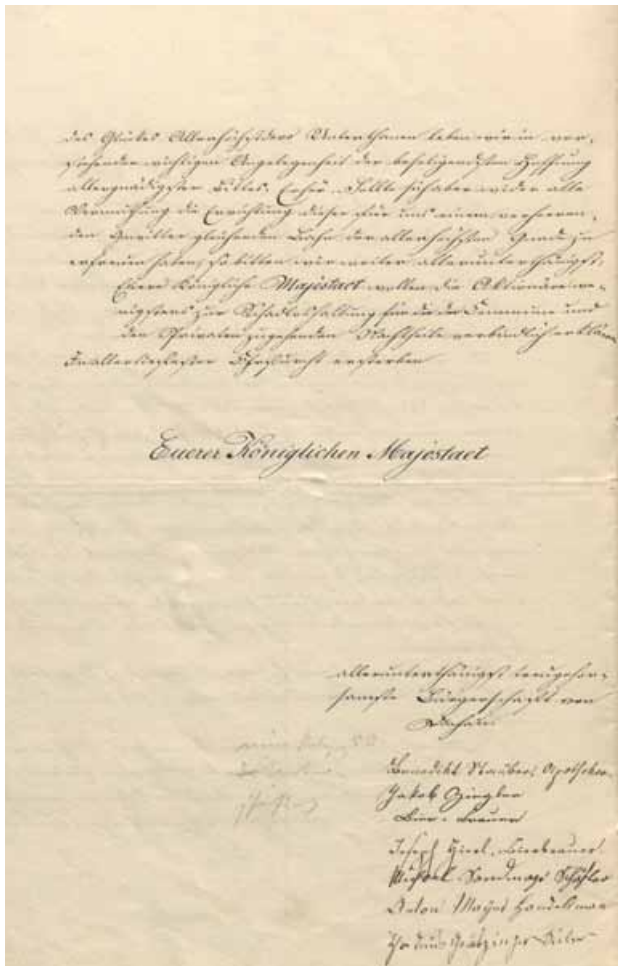 des Glückes Allerhöchstdero Unterthanen leben wir in vor-
stehender wichtigen Angelegenheit der beseligendsten Hoffnung
allergnädigster Bittes. Sollte sich aber wider alle
Vermuthung die Errichtung dieser für uns einem verheeren-
den Gewitter gleichenden Bahn der allerhöchsten Gnade zu
erfreuen haben, so bitten wir weiter allerunterthänigst,
Euere Königliche Majestaet wollen die Aktionäre we-
nigstens zur Schadloshaltung für die der Commune und
den Privaten zugehenden Nachtheile verbindlich erklären
In allertiefster Ehrfurcht ersterben
Euerer Königlichen Majestaet
allerunterthänigst treugehor-
samste Bürgerschaft von
Dachau
Benedikt Stauber, Apotheker
Jakob Ziegler
Bier-Brauer
Joseph Hierl, Bierbrauer
Michael Schäfler
Anton Mayer Handelsman